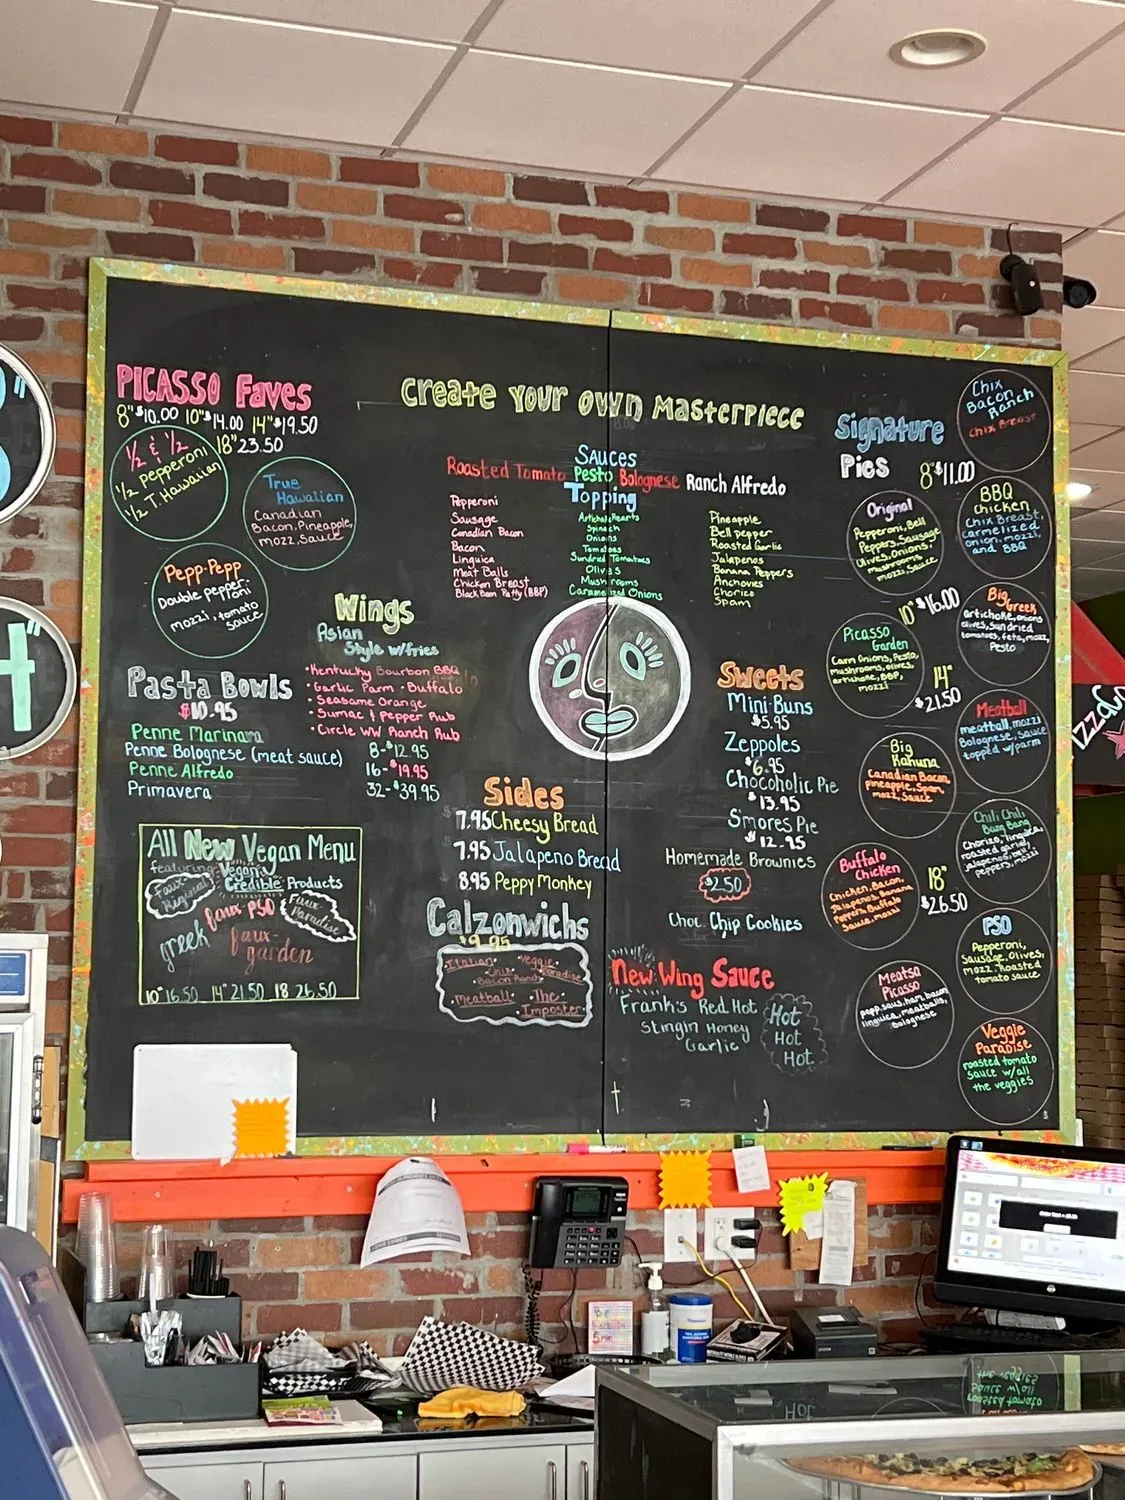 PICASSO Faves
8" $10.00 10" $14.00 14" $19.50
18" 23.50
½ & ½
½ pepperoni
½ T. Hawaiian
True
Hawaiian
Canadian
Bacon, Pineapple,
mozz, Sauce
Pepp-Pepp
Double pepper-
roni
mozzi, tomato
sauce
Pasta Bowls
$10.95
Penne Marinara
Penne Bolognese (meat sauce)
Penne Alfredo
Primavera
All New Vegan Menu
featuring Vegan
Credible Products
Faux
Original
faux-PSO
Faux-
Paradise
greek
faux-
garden
10" 16.50 14" 21.50 18 26.50
Wings
Asian
Style w/fries
• Kentucky Bourbon BBQ
• Garlic Parm • Buffalo
• Seasame Orange
• Sumac & Pepper Rub
• Circle WW Ranch Rub
8-$12.95
16-$19.95
32-$39.95
Create Your Own Masterpiece
Sauces
Roasted Tomato Pesto Bolognese Ranch Alfredo
Topping
Pepperoni
Sausage
Canadian Bacon
Bacon
Linguica
Meat Balls
Chicken Breast
Black Bean Patty (BBP)
Artichoke Hearts
Spinach
Onions
Tomatoes
Sundried Tomatoes
Olives
Mushrooms
Caramelized Onions
Pineapple
Bell pepper
Roasted Garlic
Jalapenos
Banana Peppers
Anchovies
Chorico
Spam
Sides
7.95 Cheesy Bread
7.95 Jalapeno Bread
8.95 Peppy Monkey
Calzonwichs
$9.95
• Italian • Veggie Paradise
• Chix Bacon Ranch
• Meatball • The
Imposter
Sweets
Mini Buns
$5.95
Zeppoles
$6.95
Chocoholic Pie
$13.95
S'mores Pie
$12.95
Homemade Brownies
$2.50
Choc. Chip Cookies
New Wing Sauce
Frank's Red Hot
Stingin Honey
Garlic
Hot
Hot
Hot
Signature
Pies
8" $11.00
10" $16.00
14"
$21.50
18"
$26.50
Original
Pepperoni, Bell
Peppers, Sausage
Olives, Onions,
mushrooms
mozz, Sauce
Picasso
Garden
Carm Onions, Pesto,
mushrooms, olives,
artichoke, BBP,
mozzi
Big
Kahuna
Canadian Bacon,
pineapple, Spam,
mozz, Sauce
Buffalo
Chicken
Chicken, Bacon,
Jalapenos, Banana
Peppers, Buffalo
Sauce, mozzi
Meatsa
Picasso
pepp, saus, ham, bacon
linguica, meatballs,
Bolognese
Chix
Bacon
Ranch
Chix Breast
BBQ
Chicken
Chix Breast,
carmelized
onion, mozzi,
and BBQ
Big
Greek
artichoke, onions
olives, sun dried
tomatoes, feta, mozz,
Pesto
Meatball
meatball, mozzi
Bolognese, sauce
topped w/parm
Chili Chili
Bang Bang
Chorizo, linguica,
roasted garlic,
jalapenos, bell
peppers, mozzi
PSO
Pepperoni,
Sausage, Olives,
mozz, Roasted
tomato sauce
Veggie
Paradise
roasted tomato
sauce w/all
the veggies